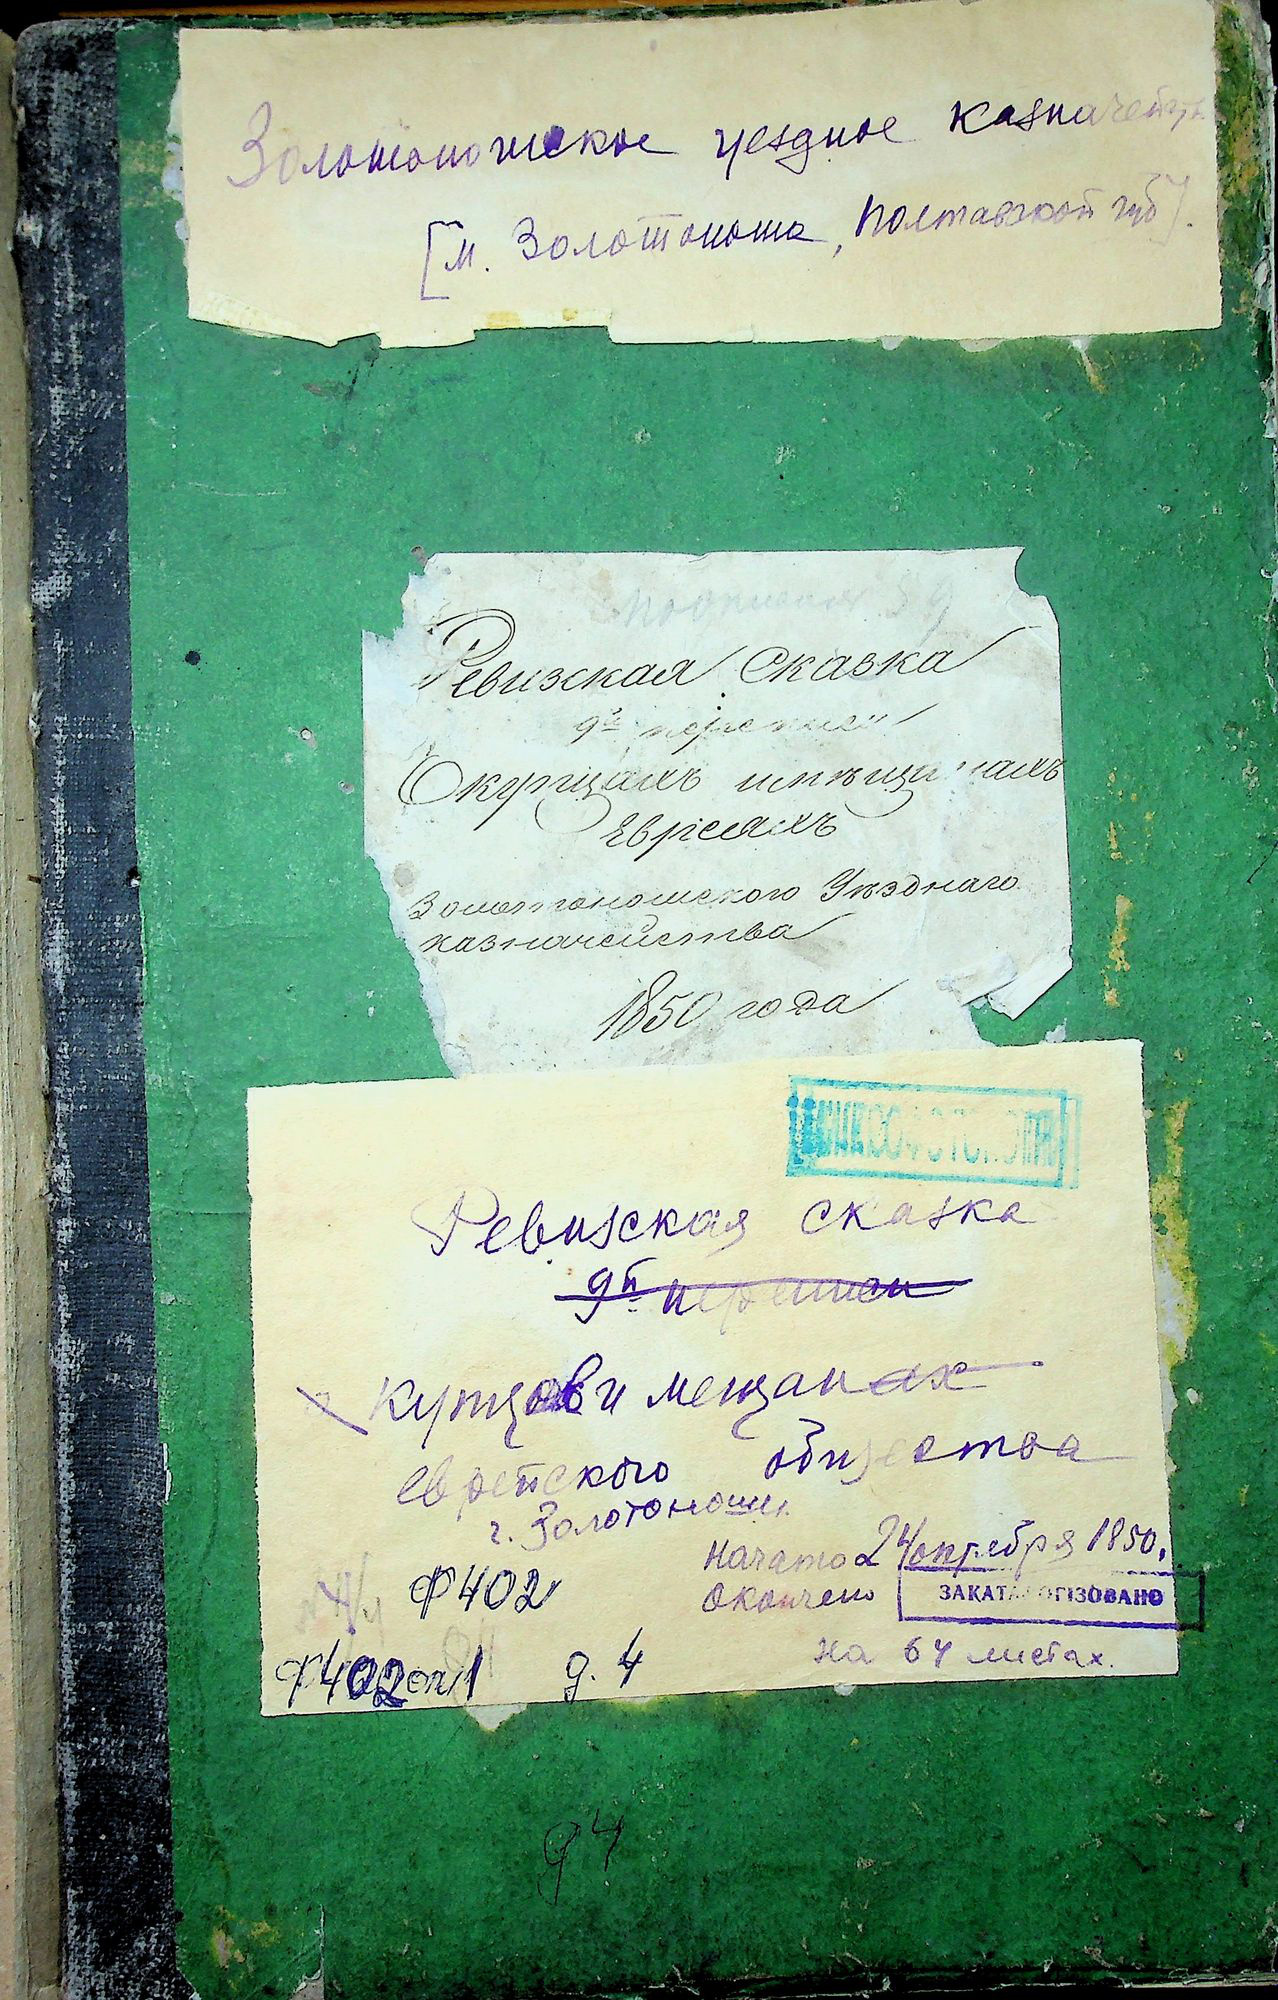 Золотоношское уездное казначейств
[м. Золотоноша, Полтавской губ].
Ревизская Сказка
9й переписи
О купцахъ и мѣщанахъ
Евреяхъ
Золотоношского Уѣзднаго
казначейства
1850 года
Ревизская сказка
9й переписи
купцов и мещанах
еврейского общества
г. Золотоноши.
Начато 24 октября 1850.
Окончено
ЗАКАТАЛОГІЗОВАНО
Ф 402
на 64 листах.
Ф 402 оп 1 д. 4
д 4